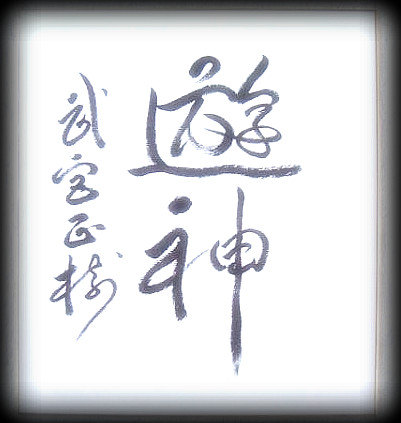 遊神
武宮正樹